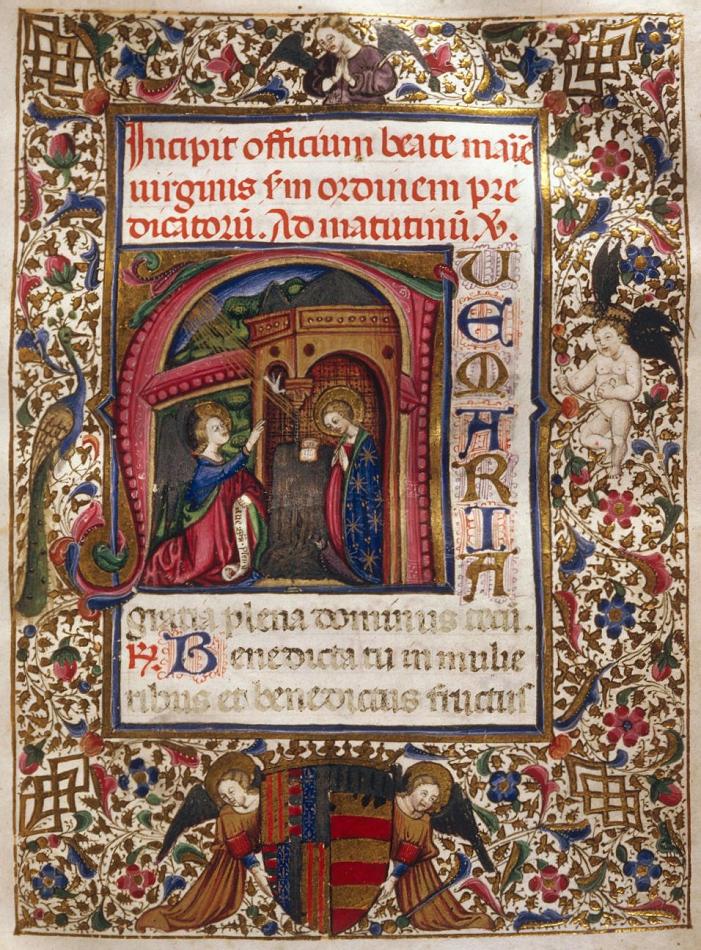 Incipit officium beate marie
uirginis sm ordinem pre
dicatorū. Ad matutinū. V.
A
UE MARIA
gratia plena dominus tecū.
R. Benedicta tu in mulie
ribus et benedictus fructus
aue gra plena